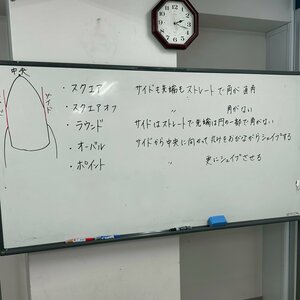 中央
サイド
・スクエア　サイドも先端もストレートで角が直角
・スクエアオフ　〃　角がない
・ラウンド　サイドはストレートで先端は円の一部で角がない
・オーバル　サイドから中央に向かって丸けをおびながらシェイプする
・ポイント　更にシェイプさせる